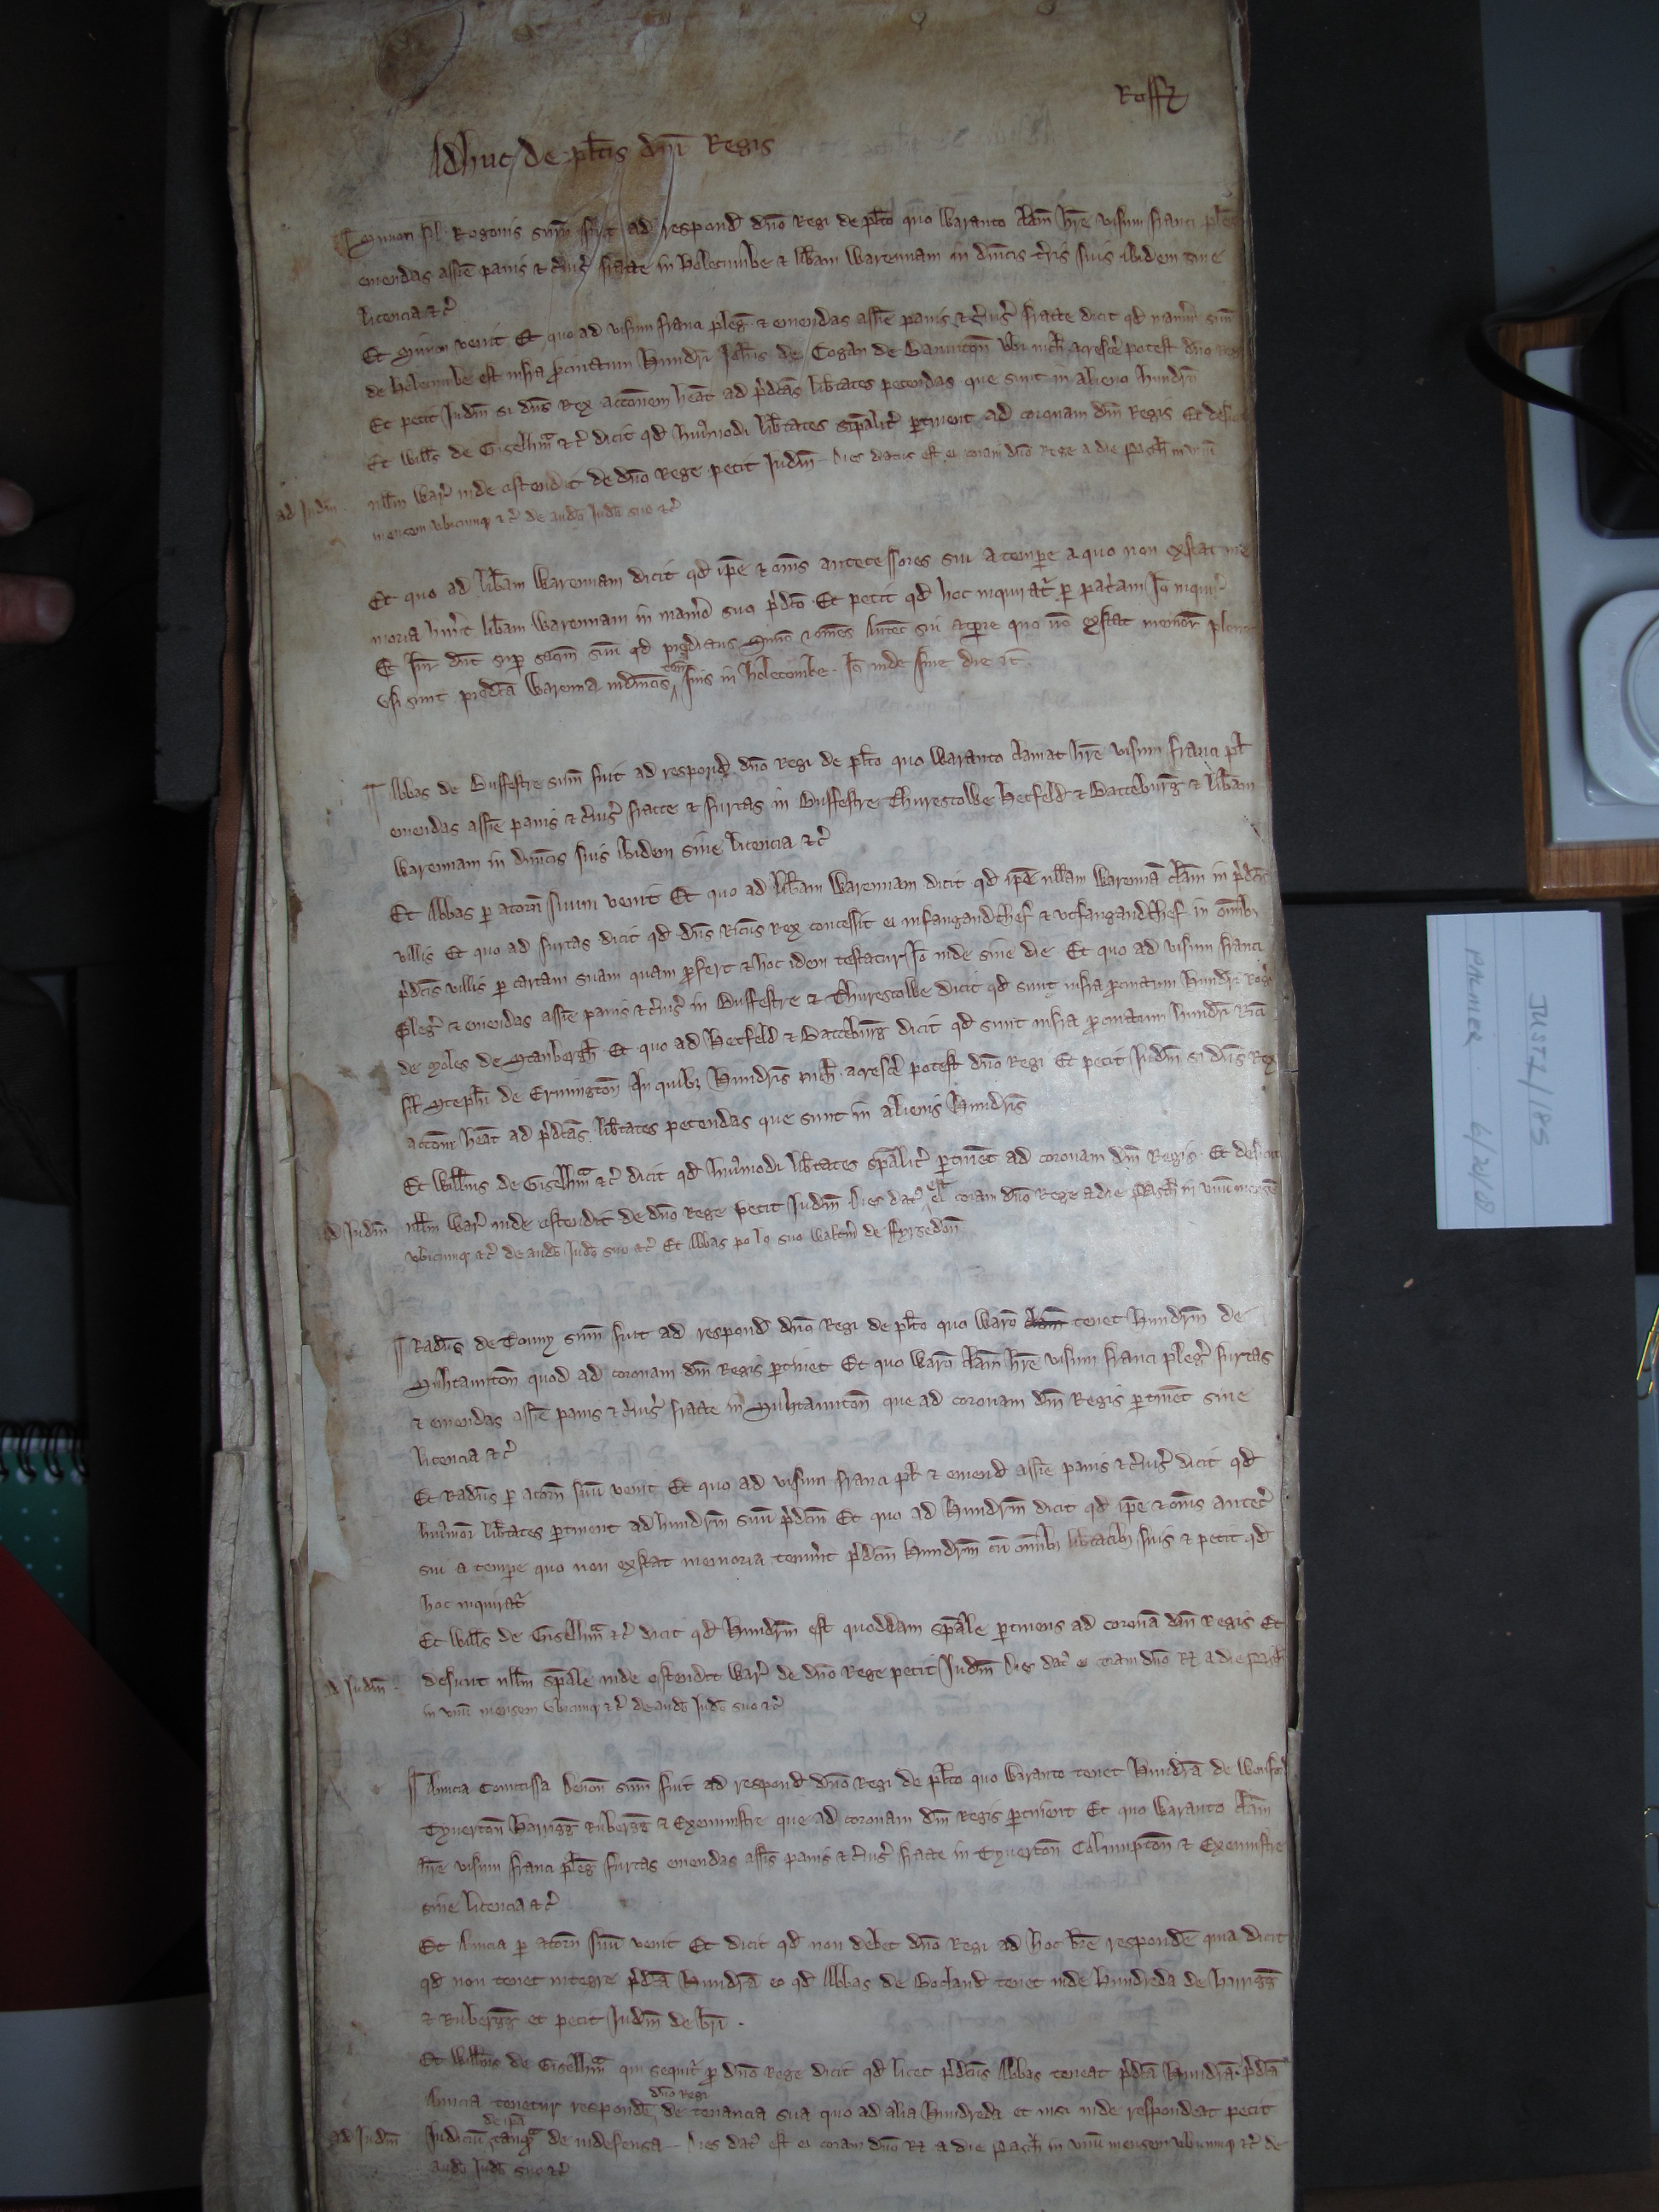 Roff
Adhuc de pl̄itis dn̄i Regis
fil Rogonis sum̄ fuit ad respond dn̄o Regi de pl̄ito quo Waranto clam̄ hr̄e visum franci pleḡ
emendas assie panis & cuis̄ fracte in Holecumbe & lib̄am Warennam in dn̄icis t̄ris suis ibidem sine
licencia &c̄
Et Simon venit Et quo ad visum franci pleḡ & emendas assie panis & cuis̄ fracte dicit qd maner̄ suū
de Holecumbe est infra p̄cinctum Hundr̄ Joh̄is de Cogan de Baunton̄ vbi nich̄ acresc̄e potest dn̄o Regi
Et petit Judm̄ si dn̄s Rex acc̄onem heat̄ ad p̄dc̄as lib̄tates petendas que sunt in alieno hundr̄o
Et Will̄s de Giselhm̄ &c̄ dicit qd hui9modi lib̄tates sp̄alit̄ p̄tinent ad coronam dn̄i Regis Et
nll̄m War̄ inde ostendit de dn̄o Rege petit Judm̄ Dies datus est ei coram dn̄o Rege a die Pasch̄ in vnū
ad Judm̄
mensem vbicumq &c̄ de aud̄ Jud̄ suo &c̄
Et quo ad lib̄am Warennam dicit qd ip̄e & om̄s antecessores sui a temp̄e a quo non exstat me
moria hūert lib̄am Warennam in man̄io suo p̄dc̄o Et petit qd hoc inquirat̄ p̄ pat̄am Io inquir̄
Et Jur̄ dn̄t sup̄ sac̄m suū qd predictus Simō & omēs Antec̄ sui a tp̄re quo nō exstat memor̄ plene
vsi sunt predc̄a Warenna in dn̄icis t̄ris suis in Holecombe Io inde sine die &c̄
Abbas de Buffestre sum̄ fuit ad respond dn̄o Regi de pl̄ito quo Waranto clamat hr̄e visum franci pl̄
emendas assie panis & cuis̄ fracte & furcas in Buffestre Churestowe Hetfeld & Batteburḡ & lib̄am
Warennam in dn̄icis suis ibidem sine licencia &c̄
Et Abbas p̄ atorn̄ suum venit Et quo ad lib̄am Warennam dicit qd ip̄e nll̄am Warennā clam̄ in p̄dc̄is
villis Et quo ad furcas dicit qd dn̄s Ric̄us Rex concessit ei infangandthef & vtfangandthef in om̄ib3
p̄dc̄is villis p̄ cartam suam quam p̄fert & hoc idem testatur Io inde sine die Et quo ad visum franci
Pleḡ & emendas assie panis & cuis̄ in Buffestre & Churestowe dicit qd sunt infra p̄cinctum Hundr̄ Roḡi
de Moles de Stanbergh̄ Et quo ad Hetfeld & Batteburḡ dicit qd sunt infra p̄cinctum hundr̄ Ric̄i
fil Steph̄i de Ermington̄ In quib3 Hundr̄is nich̄ acresc̄e potest dn̄o Regi Et petit Judm̄ si dn̄s Rex
acc̄om̄ heat̄ ad p̄dc̄as lib̄tates petendas que sunt in alienis Hundr̄is
Et Will̄ms de Giselhm̄ &c̄ dicit qd hui9modi lib̄tates sp̄alit̄ p̄tinēt ad coronam dn̄i Regis Et desicut
ad Judm̄
nll̄m War̄ inde ostendit de dn̄o Rege petit Judm̄ Dies dat9 est ei coram dn̄o Rege a die Pasch̄ in vnū mensē
vbicumq &c̄ de aud̄ Jud̄ suo &c̄ Et Abbas po lo suo Walt̄m de Fyrsedon̄
Radūs de Touny sum̄ fuit ad respond dn̄o Regi de pl̄ito quo Warō clam̄ tenet Hundrm̄ de
Suhtamton̄ quod ad coronam dn̄i Regis p̄tinet Et quo Warō clam̄ hr̄e visum franci pleḡ furcas
& emendas assie panis & cuis̄ fracte in Suhtamton̄ que ad coronam dn̄i Regis p̄tinēt sine
licencia &c̄
Et Radūs p̄ atorn̄ suū venit Et quo ad visum franci pl̄ & emend assie panis & cuis̄ dicit qd
hui9modi lib̄tates p̄tinent ad hundrm̄ suū p̄dc̄m Et quo ad Hundrm̄ dicit qd ip̄e & om̄s antec̄
sui a temp̄e quo non exstat memoria tenūert p̄dc̄m Hundrm̄ cū om̄ib3 lib̄tatib3 suis & petit qd
hoc inquirat̄
Et Will̄s de Giselhm̄ &c̄ dicit qd Hundrm̄ est quoddam sp̄ale p̄tinens ad coronā dn̄i Regis Et
ad Judm̄
desicut nll̄m sp̄ale inde ostendit War̄ de dn̄o Rege petit Judm̄ Dies dat9 ei coram dn̄o R̄ a die Pasch̄
in vnū mensem vbicumq &c̄ de aud̄ Jud̄ suo &c̄
Amicia Comitissa Deuon̄ sum̄ fuit ad respond dn̄o Regi de pl̄ito quo Waranto tenet Hundr̄a de Wonford
Tyuerton̄ Harrigḡ Rubergḡ & Exeministre que ad coronam dn̄i Regis p̄tinent Et quo Waranto clam̄
hr̄e visum franci pleḡ furcas emendas assis̄ panis & cuis̄ fracte in Tyuerton̄ Columpton̄ & Exeministre
sine licencia &c̄
Et Amicia p̄ atorn̄ suū venit Et dicit qd non debet dn̄o Regi ad hoc br̄e respondē quia dicit
qd non tenet integre p̄dc̄a Hundr̄a eo qd Abbas de Bocland tenet inde Hundreda de Harrigḡ
& Rubergḡ et petit Judm̄ de br̄i
Et Will̄ms de Giselhm̄ qui sequit̄ p̄ dn̄o Rege dicit qd licet p̄dc̄us Abbas teneat p̄dc̄a Hundr̄a p̄dc̄a
Amicia tenetur respondē dn̄o Regi de tenancia sua quo ad alia Hundreda et nisi inde respondeat petit
ad Judm̄
Judiciū de ip̄a tanq̄m de indefensa Dies dat9 est ei coram dn̄o R̄ a die Pasch̄ in vnū mensem vbicumq &c̄ de
aud̄ Jud̄ suo &c̄
JUST 2/185
PALMER 6/24/08